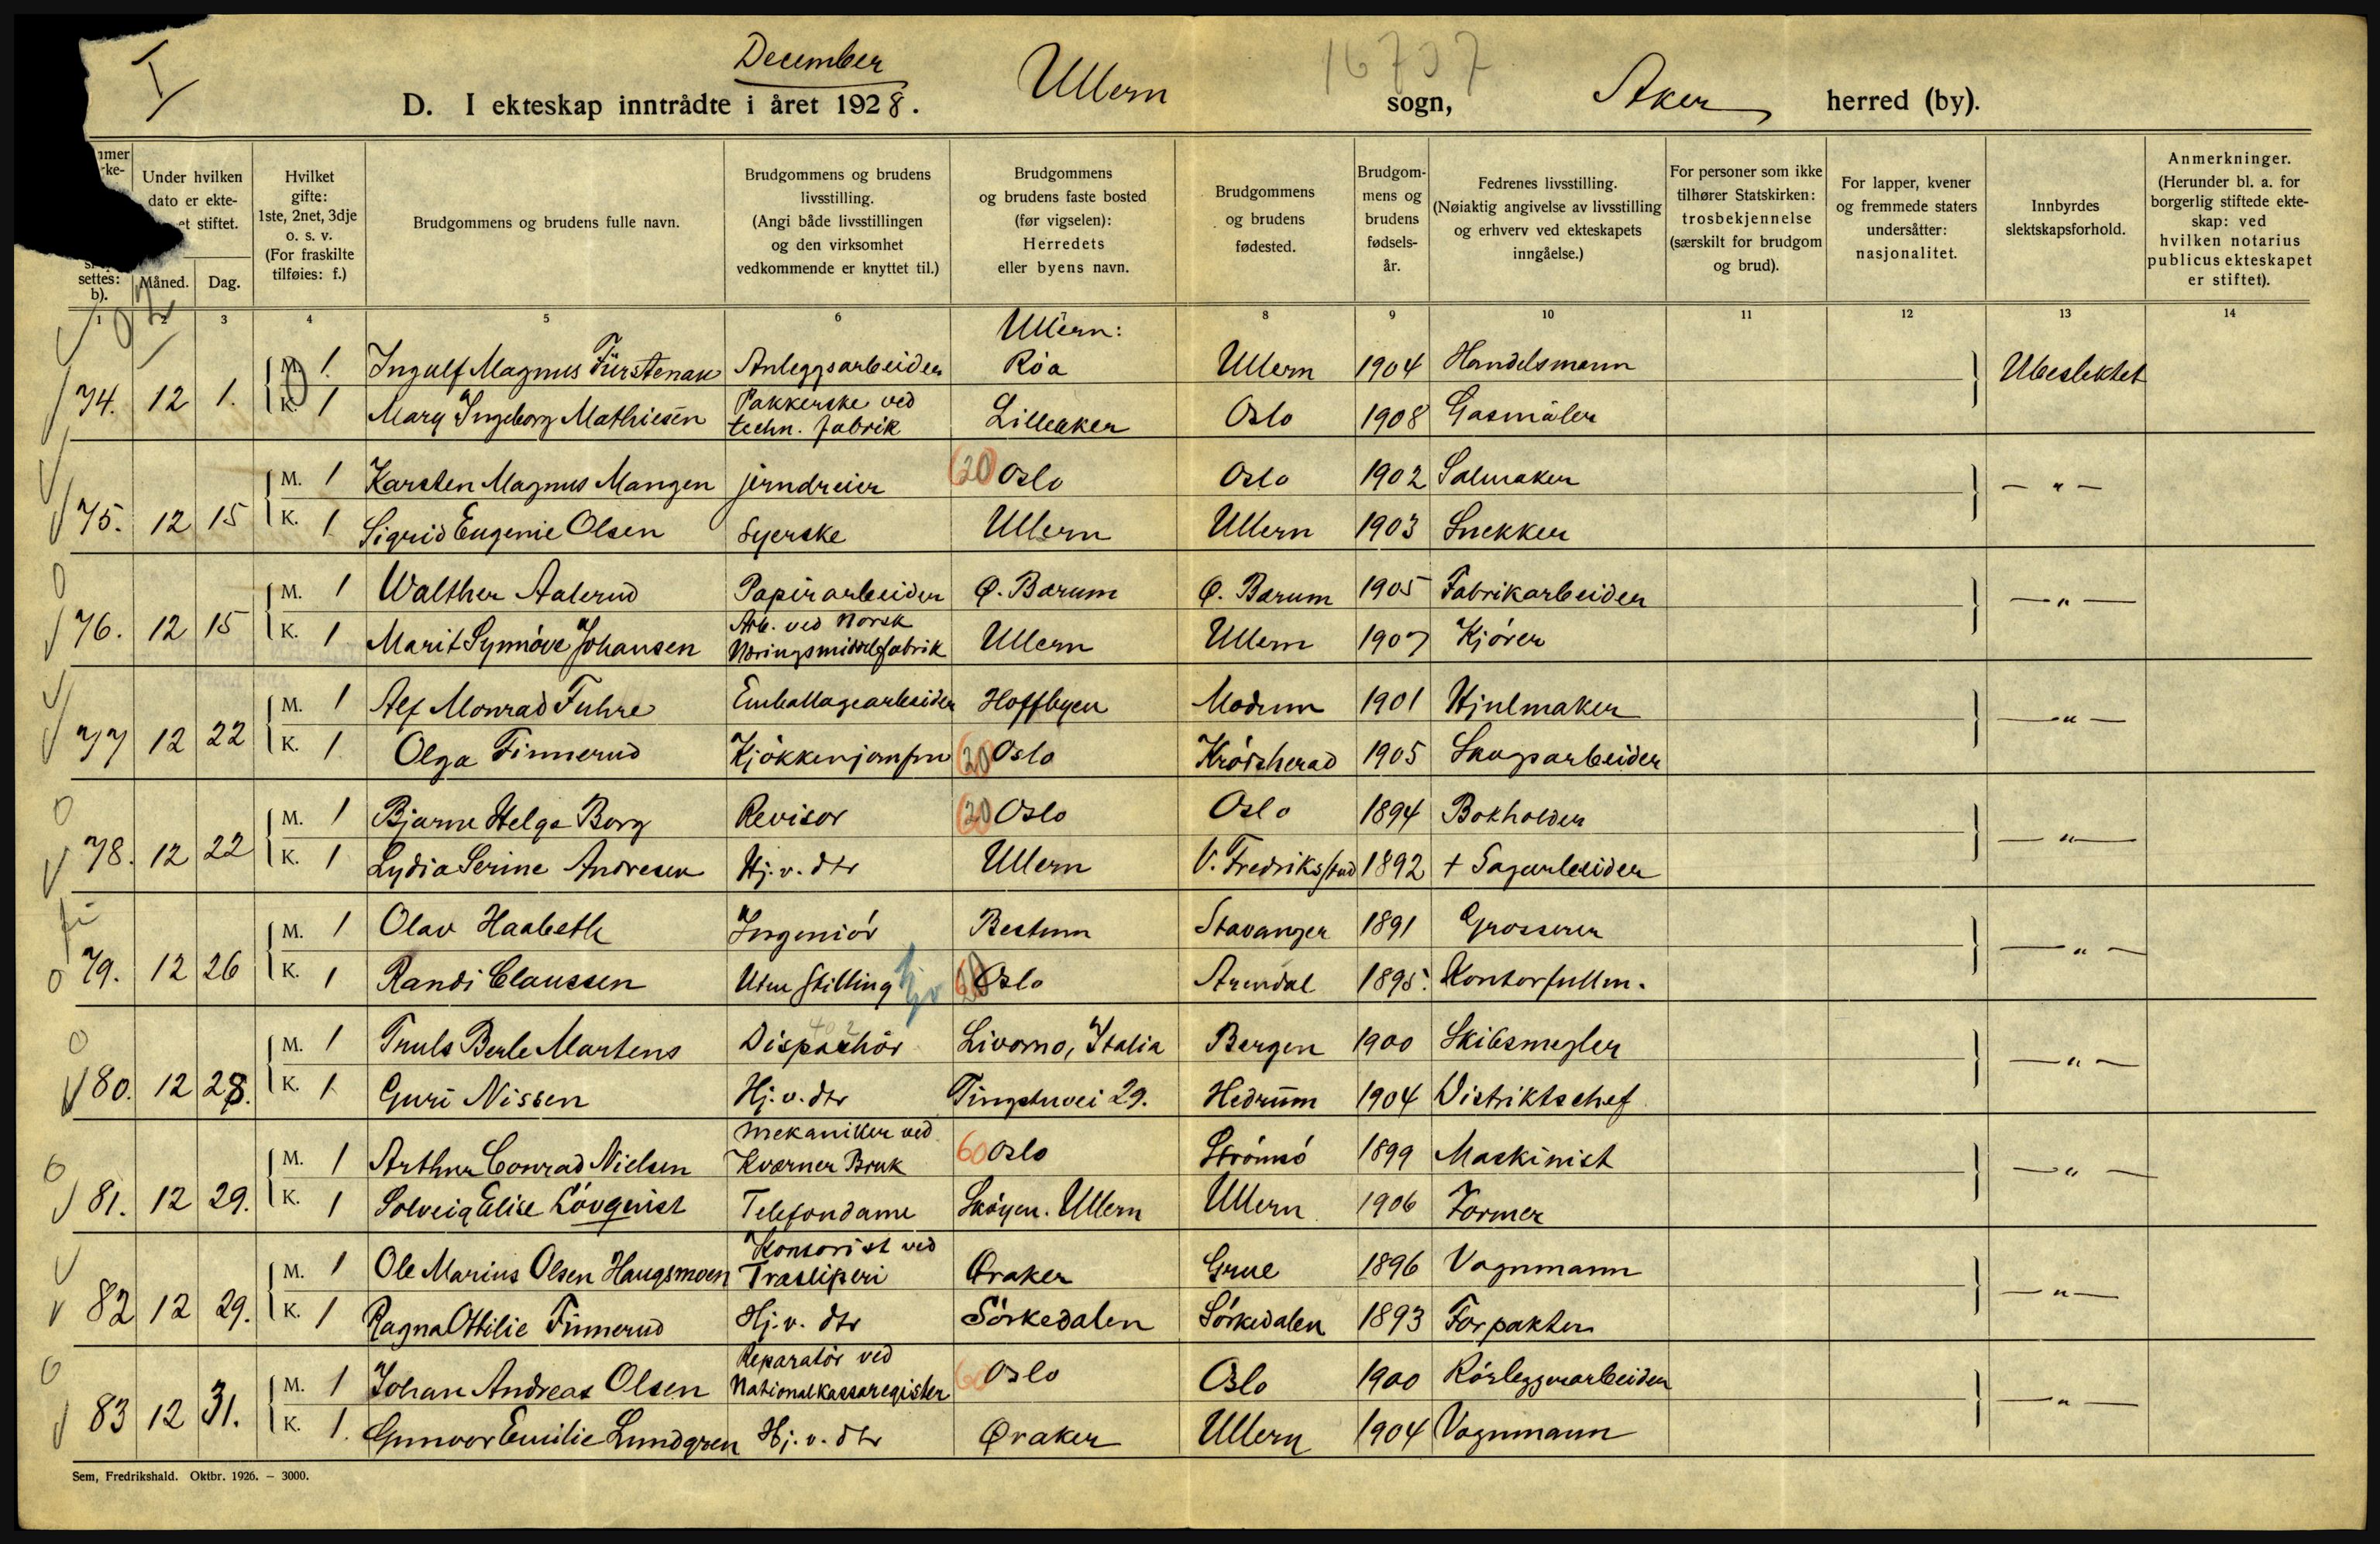 I
December
16707
D. I ekteskap inntrådte i året 1928. Ullern sogn, Aker herred (by).
Under hvilken dato er ekte- et stiftet.
settes: b).
Måned. Dag.
Hvilket gifte: 1ste, 2net, 3dje o. s. v. (For fraskilte tilføies: f.)
Brudgommens og brudens fulle navn.
Brudgommens og brudens livsstilling. (Angi både livsstillingen og den virksomhet vedkommende er knyttet til.)
Brudgommens og brudens faste bosted (før vigselen): Herredets eller byens navn.
Brudgommens og brudens fødested.
Brudgommens og brudens fødsels- år.
Fedrenes livsstilling. (Nøiaktig angivelse av livsstilling og erhverv ved ekteskapets inngåelse.)
For personer som ikke tilhører Statskirken: trosbekjennelse (særskilt for brudgom og brud).
For lapper, kvener og fremmede staters undersåtter: nasjonalitet.
Innbyrdes slektskapsforhold.
Anmerkninger. (Herunder bl. a. for borgerlig stiftede ekte- skap: ved hvilken notarius publicus ekteskapet er stiftet).
1 2 3 4 5 6 7 8 9 10 11 12 13 14
Ullern:
M. 1. Ingulf Magnus Fürstenau Anleggsarbeider Røa Ullern 1904 Handelsmann Ubeslektet
74. 12 1. K. 1 Mary Ingeborg Mathiesen Pakkerske ved techn. fabrik Lilleaker Oslo 1908 Gasmåler
M. 1 Karsten Magnus Mangen jerndreier 20 Oslo Oslo 1902 Salmaker — " —
75. 12 15 K. 1 Sigrid Eugenie Olsen Syerske Ullern Ullern 1903 Snekker
M. 1 Walther Aalerud Papirarbeider Ø. Bærum Ø. Bærum 1905 Fabrikarbeider — " —
76. 12 15 K. 1 Marit Synnöve Johansen Arb. ved Norsk Næringsmiddelfabrik Ullern Ullern 1907 Kjörer
M. 1 Alf Monrad Fuhre Emballagearbeider Hoffbyen Modum 1901 Hjulmaker — " —
77 12 22 K. 1 Olga Finnerud Kjökkenjomfru 20 Oslo Krödsherad 1905 Skogsarbeider
M. 1 Bjarne Helge Borg Revisor 20 Oslo Oslo 1894 Bokholder — " —
78. 12 22 K. 1 Lydia Serine Andresen Hj. v. dtr Ullern V. Fredrikstad 1892 + Sagarbeider
M. 1 Olav Haabeth Ingeniör Bestum Stavanger 1891 Grosserer — " —
79. 12 26 K. 1 Randi Claussen Uten stilling Oslo Arendal 1895. Kontorfullm.
M. 1 Truls Berle Martens Dispachör Livorno, Italia Bergen 1900 Skibsmegler — " —
80. 12 28. K. 1 Guri Nissen Hj. v. dtr Tingstuvei 29. Hedrum 1904 Distriktschef
M. 1 Arthur Conrad Nielsen Mekaniker ved Kværner Bruk 60 Oslo Strömsö 1899 Maskinist — " —
81. 12 29. K. 1 Solveig Elise Lövqvist Telefondame Skøyen. Ullern Ullern 1906 Former
M. 1 Ole Marius Olsen Haugsmoen Kontorist ved Træsliperi Øraker Grue 1896 Vognmann — " —
82 12 29. K. 1 Ragna Ottilie Finnerud Hj. v. dtr Sörkedalen Sörkedalen 1893 Forpakter
M. 1 Johan Andreas Olsen Reparatör ved Nationalkassaregister 60 Oslo Oslo 1900 Rörleggerarbeider — " —
83 12 31. K. 1. Gunvor Emilie Lundgren Hj. v. dtr Øraker Ullern 1904 Vognmann
Sem, Fredrikshald. Oktbr. 1926. – 3000.